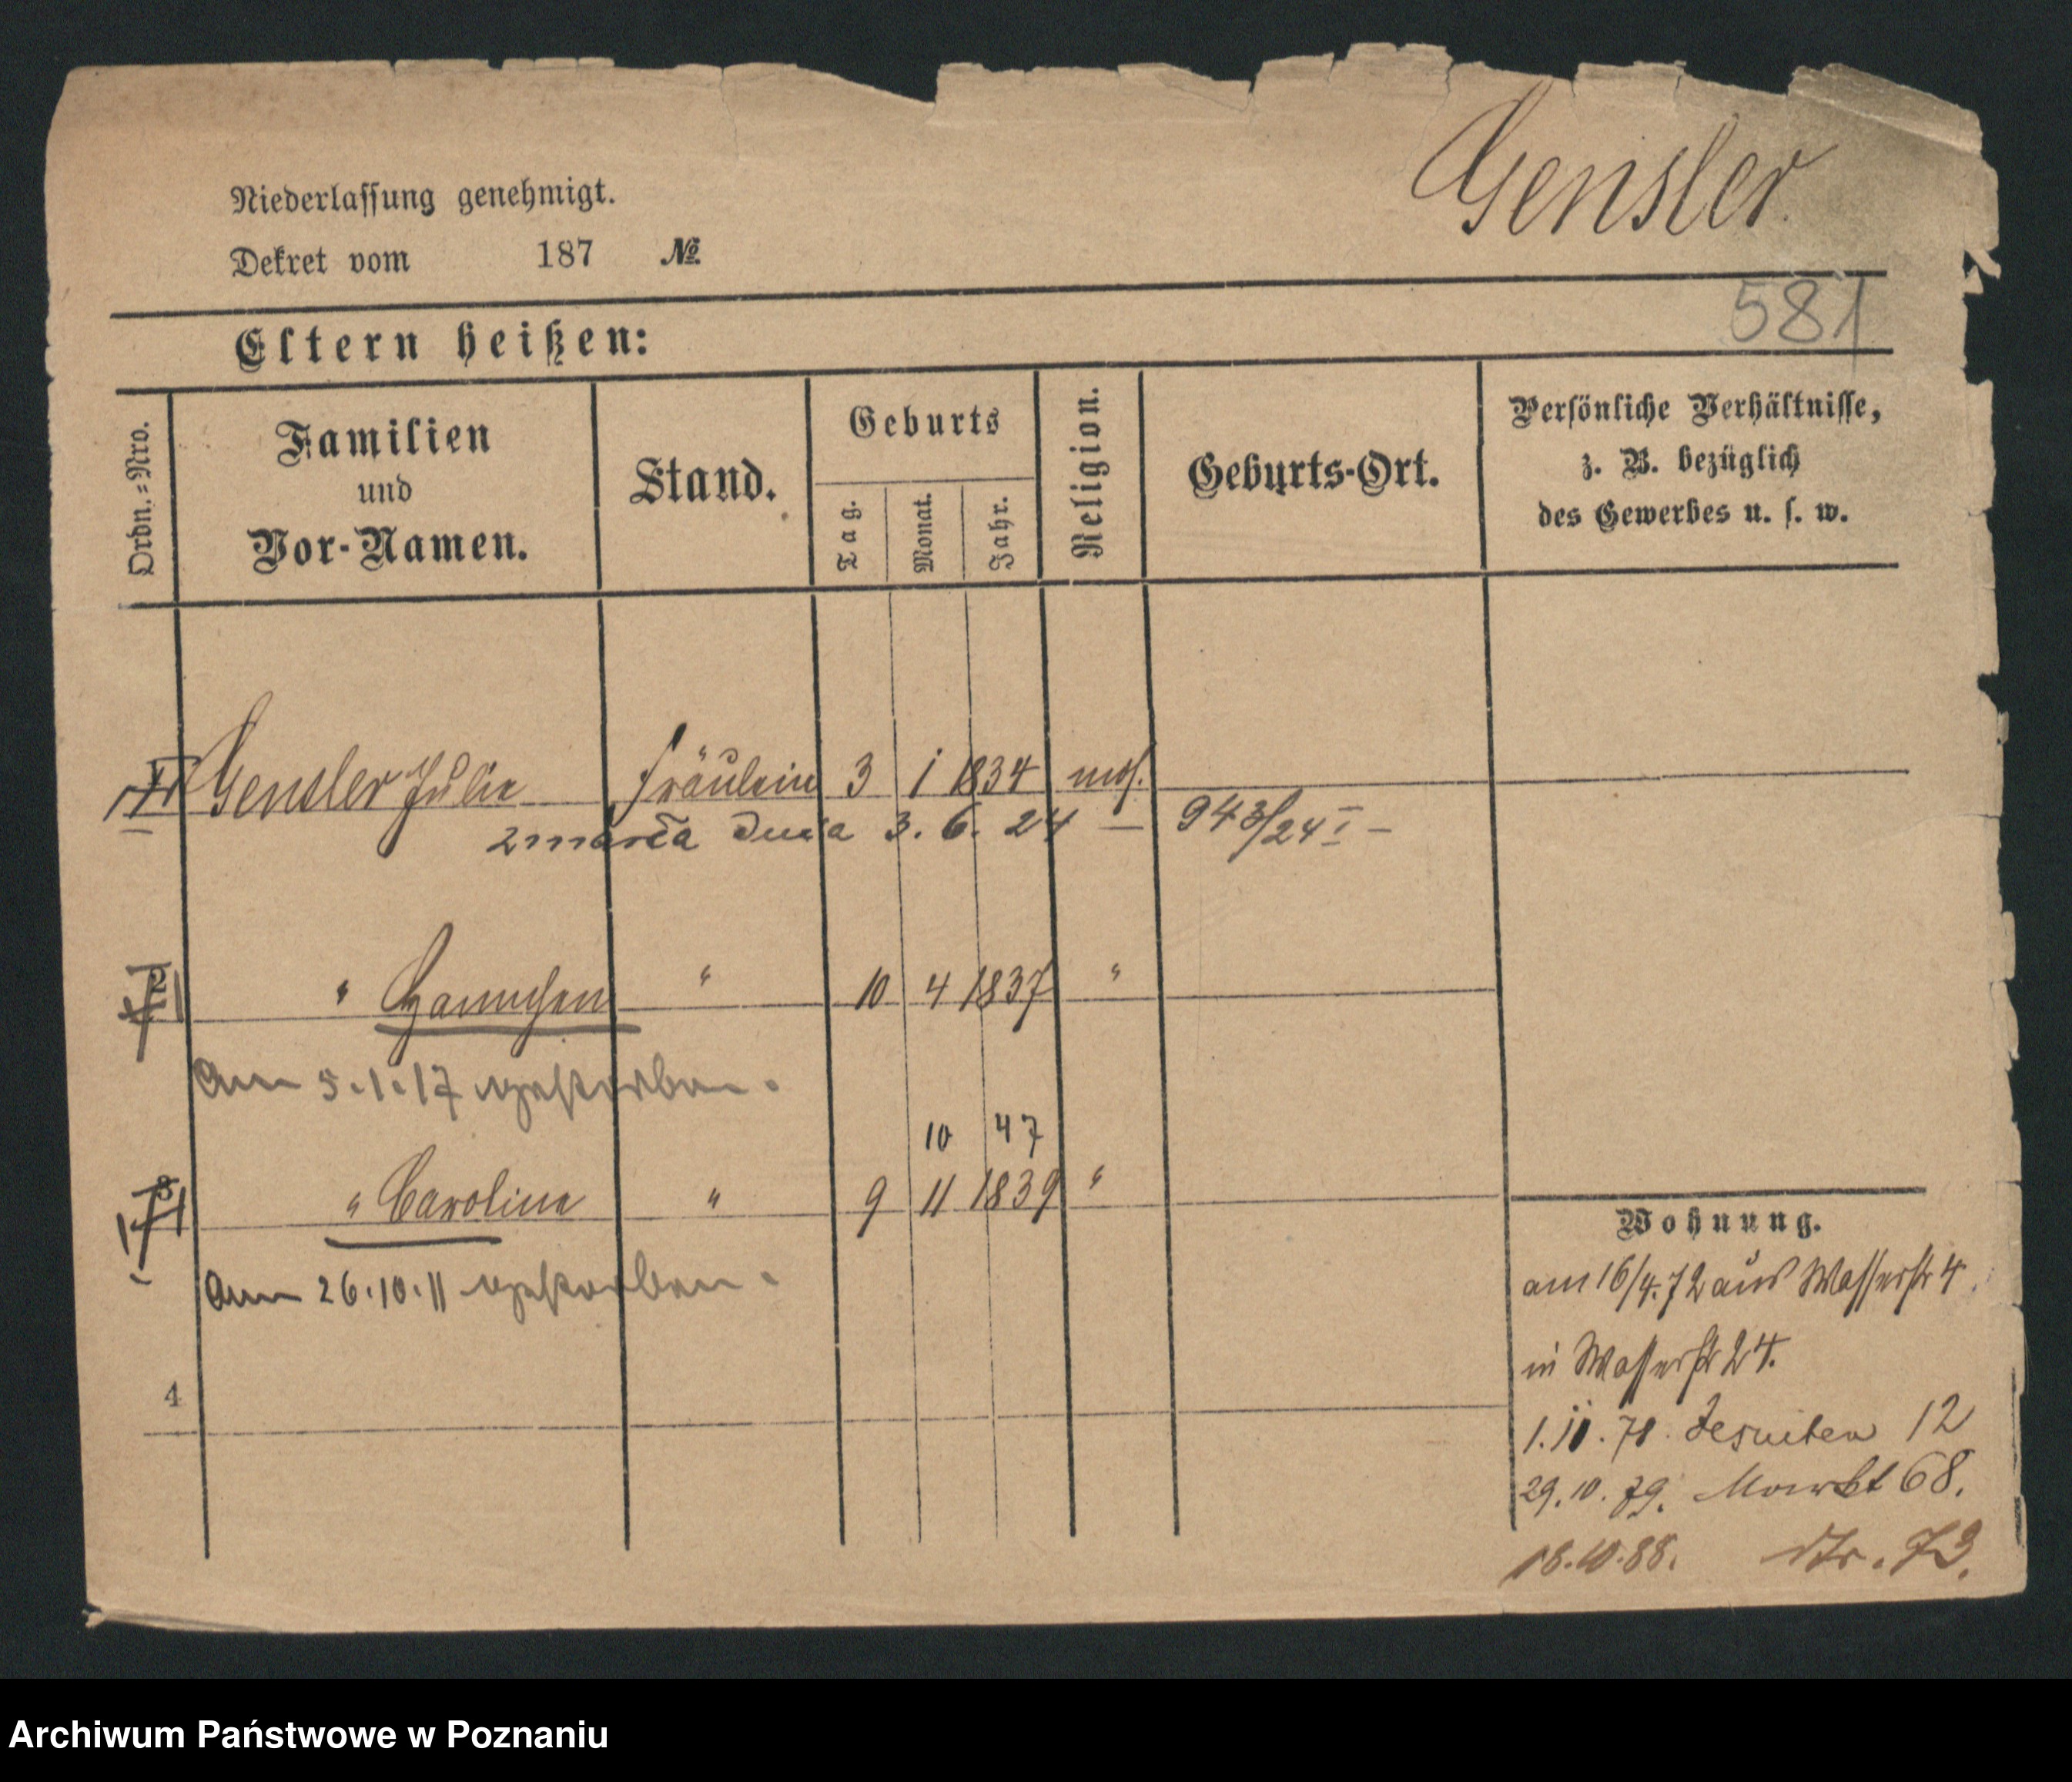 Gensler
Niederlassung genehmigt.
Dekret vom 187 №
581
Eltern heißen:
Ordn.=Nro. Familien und Vor-Namen. Stand. Geburts Tag. Monat. Jahr. Religion. Geburts-Ort. Persönliche Verhältnisse, z. B. bezüglich des Gewerbes u. s. w.
Gensler Julie Fräulein 3 1 1834 mos.
zmarła dnia 3. 6. 24 — 943/24 I —
2 " Hannchen " 10 4 1837 "
Am 5.1.17 gestorben.
10 47
3 " Caroline " 9 11 1839 "
Am 26.10.11 gestorben.
4
Wohnung.
am 16/4.72 aus Wasserstr 4.
in Wasserstr 24.
1.10.78. Jesuiten 12
29.10.79. Markt 68.
18.10.88. dto. 73.
Archiwum Państwowe w Poznaniu